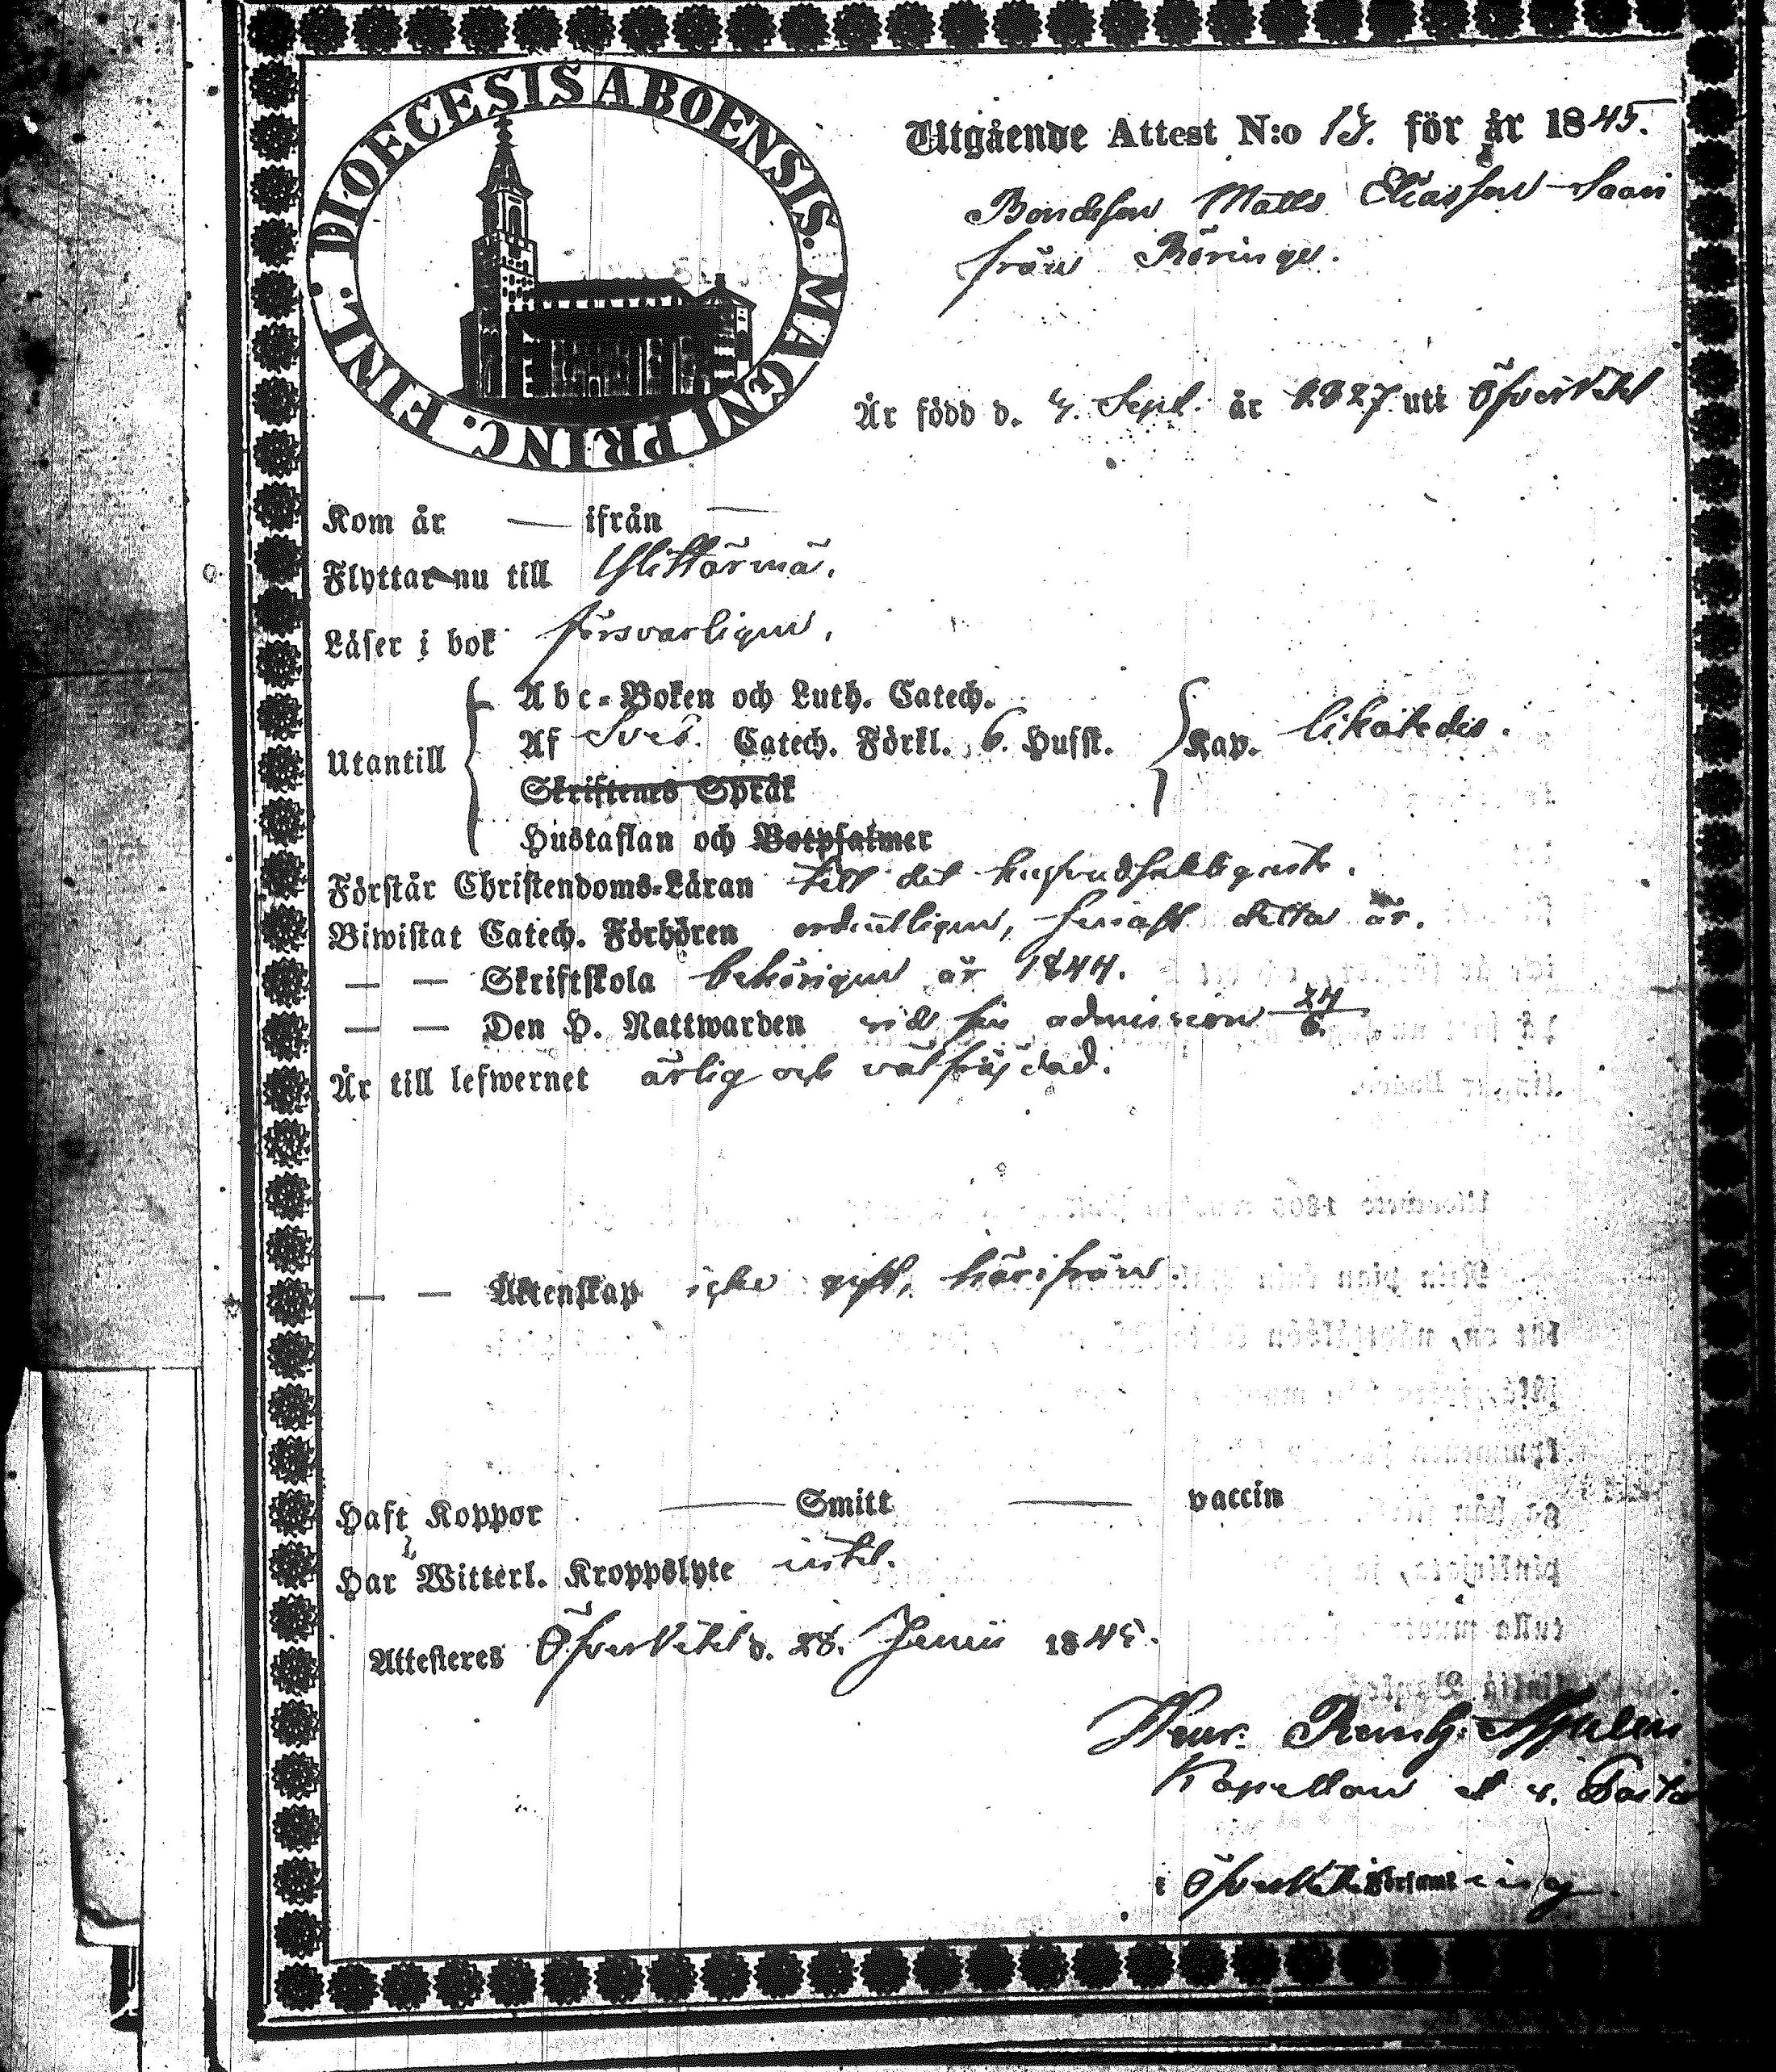 DIOECESIS ABOENSIS. MAGNI PRINC. FINL.
Utgående Attest N:o för år 1845.
Bondeson Matts Eliasson Saari
från Röringe.
Är född d. Sept. år 1827 uti Öfvervetil
Kom år — ifrån —
Flyttar nu till Ylihärmä.
Läser i bok försvarligen,
Abc-Boken och Luth. Catech.
Utantill Af Sveb. Catech. Förkl. 6. Hufst. Kap. likaledes.
Skriftenes Språk
Hustaflan och Botpsalmer
Förstår Christendoms-Läran till det hufvudsakligaste.
Biwistat Catech. Förhören ordentligen, senast detta år.
— — Skriftskola behörigen år 1844.
— — Den H. Nattwarden vid sin admission 24/6.
Är till lefwernet ärlig och välfräjdad.
— — Äktenskap icke gift, härifrån.
Haft Koppor — Smitt — vaccin
Har Witterl. Kroppslyte intet.
Attesteras Öfvervetil d. 28. Junii 1845.
Henr. Reinh.
Kapellan
i Öfvervetil Församling.